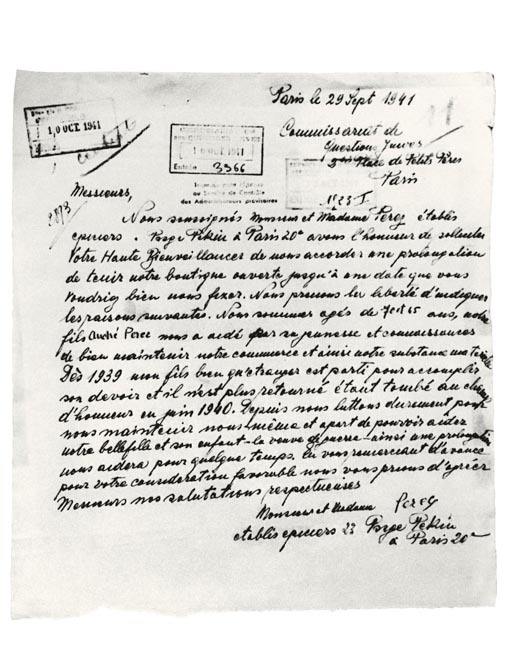 Paris le 29 Sept 1941
Commissariat de
Questions Juives
Place de Petits Pères
Paris
10 OCT. 1941
10 OCT. 1941
Entrée 3366
au Service de Contrôle
des Administrateurs provisoires
1123 I
11
Messieurs,
Nous soussignés Monsieur et Madame Perez établis
epiciers. Psge Pékin à Paris 20e avons l'honneur de solliciter
Votre Haute Bienveillance de nous accorder une prolongation
de tenir notre boutique ouverte jusqu'à une date que vous
voudriez bien nous fixer. Nous prenons la liberté d'indiquer
les raisons suivantes. Nous sommes agés de 70 et 65 ans, notre
fils André Perez nous a aidé par sa jeunesse et connaissances
de bien maintenir notre commerce et ainsi notre substance materielle
Dès 1939 mon fils bien qu'etranger est parti pour accomplir
son devoir et il n'est plus retourné étant tombé au champ
d'honneur en juin 1940. Depuis nous luttons durement pour
nous maintenir nous même et apart de pourvoir aider
notre bellefille et son enfant - la veuve de guerre - ainsi une prolongation
nous aidera pour quelque temps. En vous remerciant d'avance
pour votre consideration favorable nous vous prions d'agréer
Messieurs nos salutations respectueuses
Monsieur et Madame Perez
etablis epiciers 23 Psge Pékin
à Paris 20e